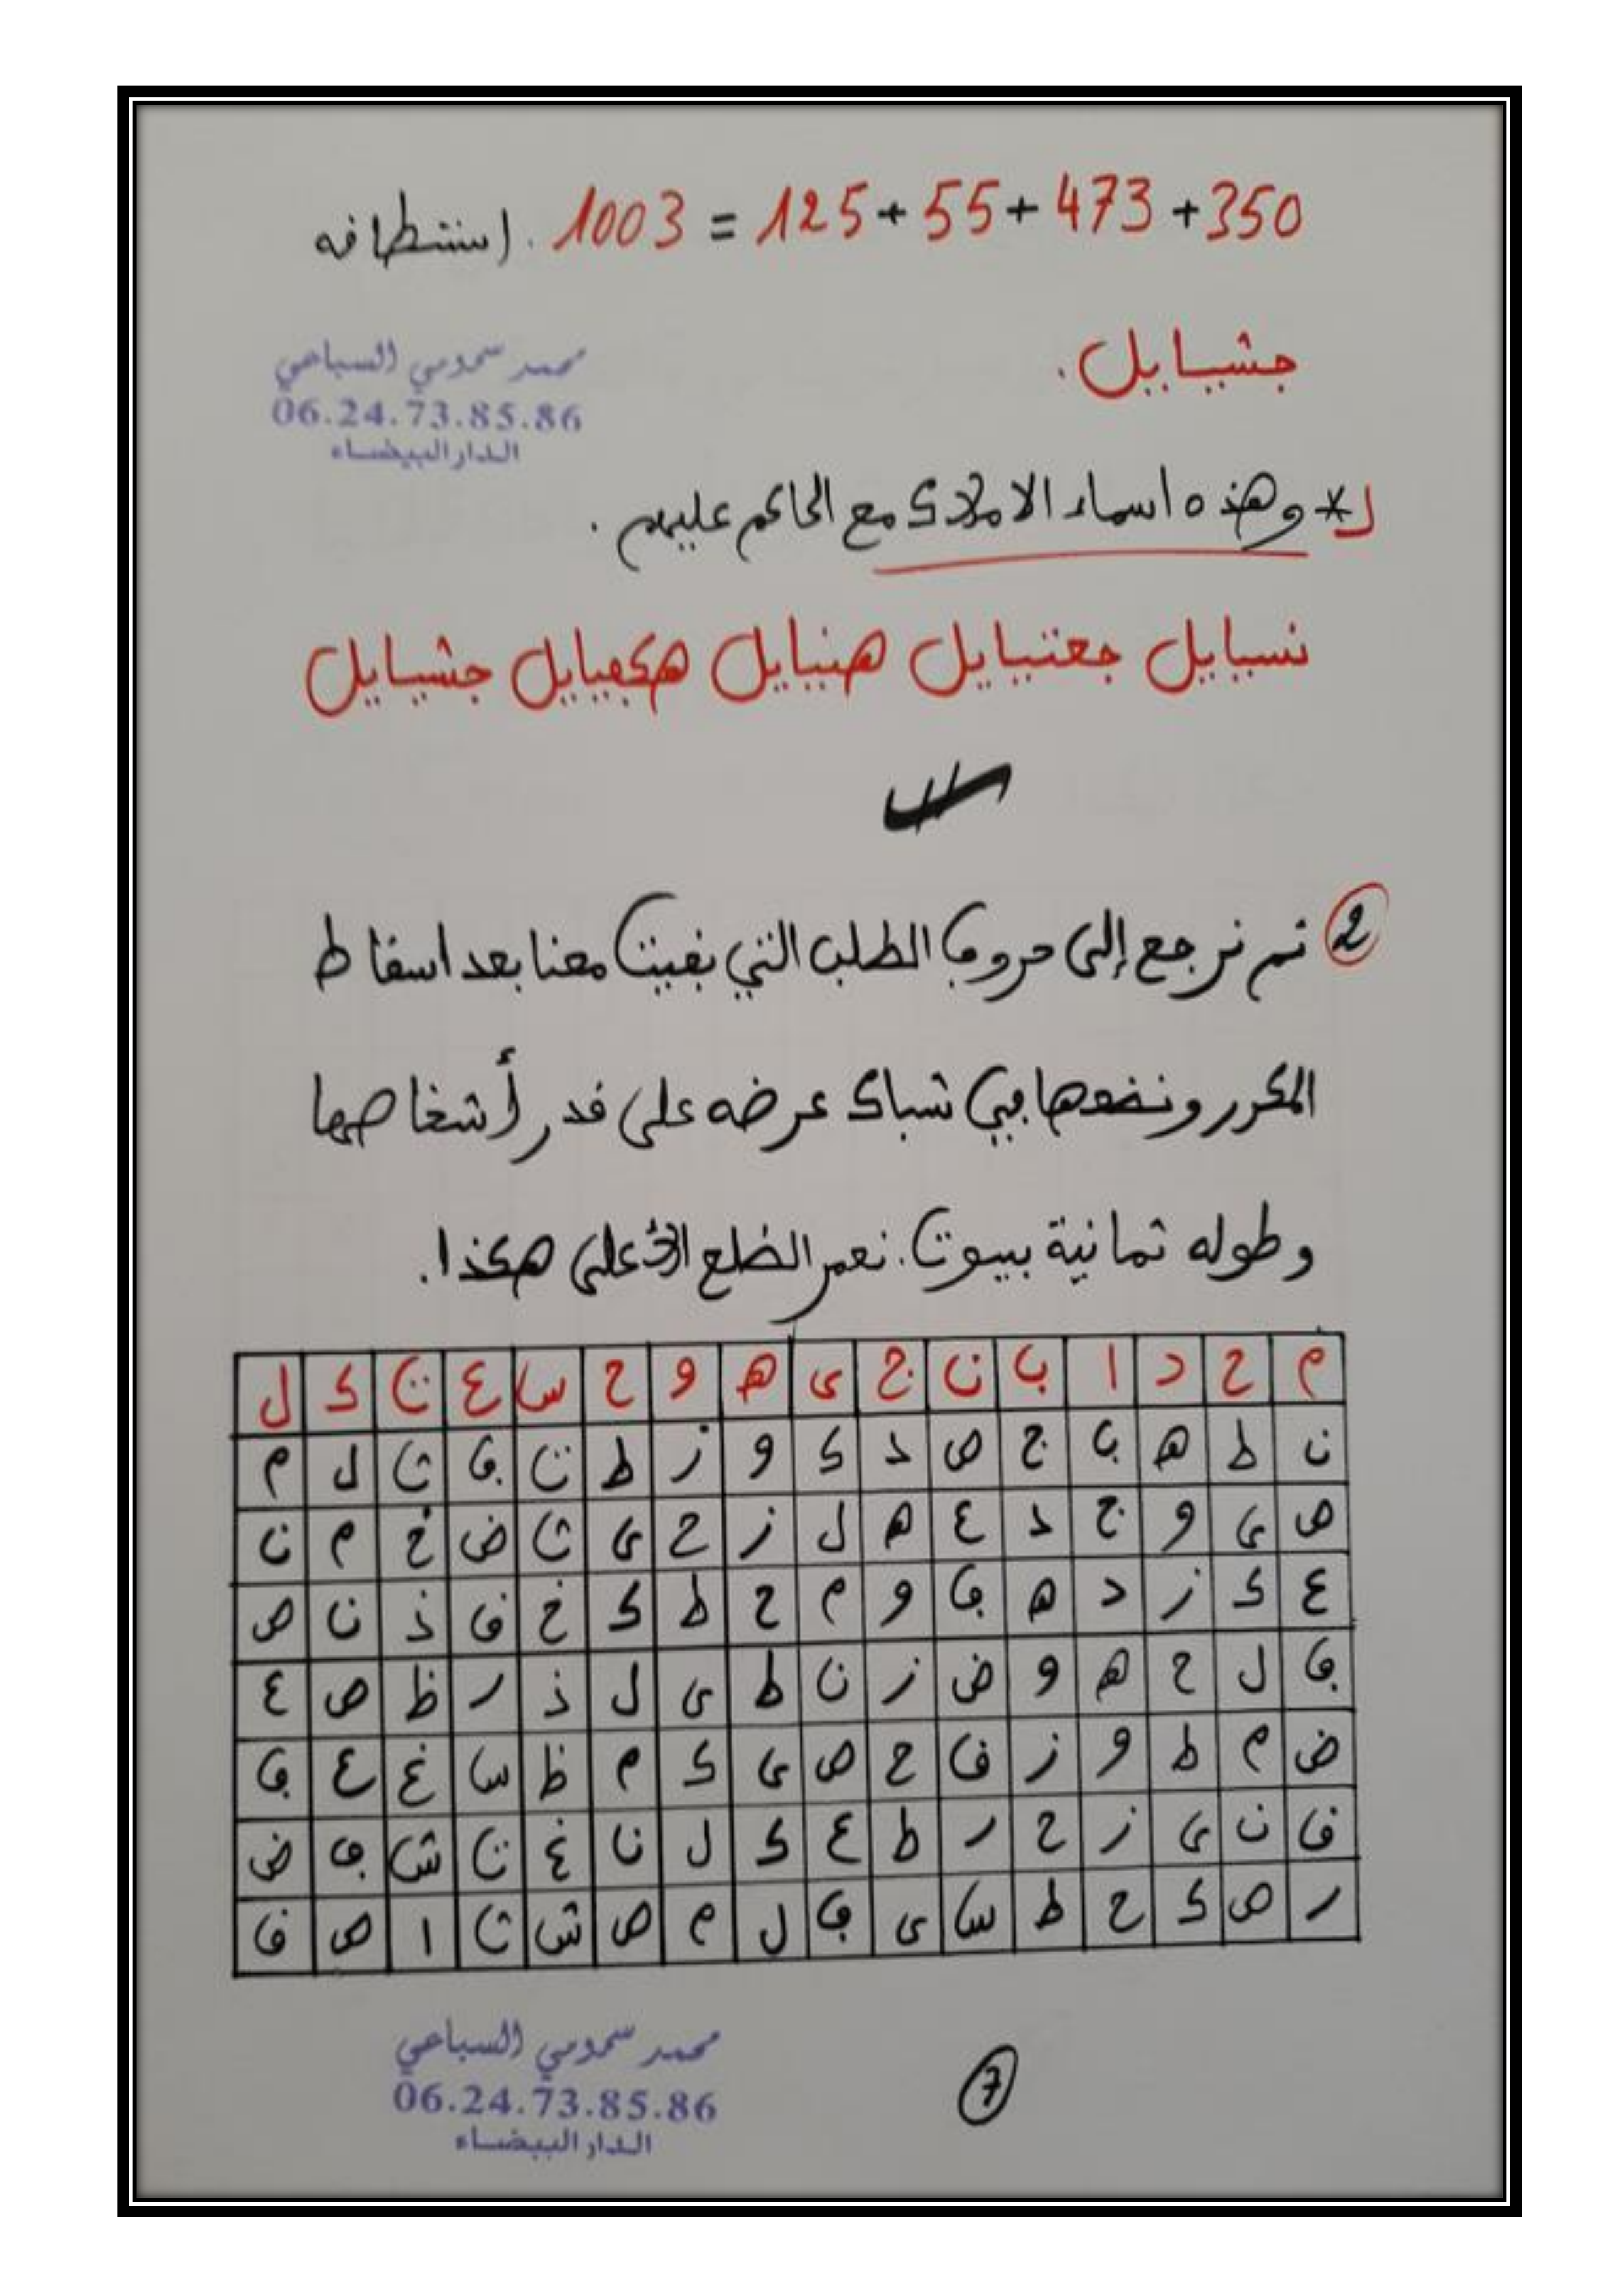 1003 = 125 + 55 + 473 + 350 . استنطاقه
جشيائيل .
محمد سمومي السباعي
06.24.73.85.86
الدار البيضاء
* وهذه اسماء الاملاك مع الحاكم عليهم .
نسيائيل جعتيائيل هنيائيل هكفيائيل جشيائيل
2 ثم نرجع إلى حروف الطلب التي بقيت معنا بعد اسقاط
المكرر ونضعها في شباك عرضه على قدر أشخاصها
وطوله ثمانية بيوت . نعمر الضلع الأعلى هكذا .
م ح د ا ب ن ج ى ه و ح س ع ت ك ل
ن ط ه ب ج ص د ك و ز ط ت ف ث ل م
ص ى و ج د ع ه ل ز ح ى ث ض خ م ن
ع ك ز د ه ف و م ح ط ك خ ق ذ ن ص
ف ل ح ه و ض ز ن ط ى ل ذ ر ظ ص ع
ض م ط و ز ق ح ص ى ك م ظ س غ ع ف
ق ن ى ز ح ر ط ع ك ل ن غ ت ش ف ض
ر ص ك ح ط س ى ف ل م ص ش ث ا ض ق
محمد سمومي السباعي
06.24.73.85.86
الدار البيضاء
7